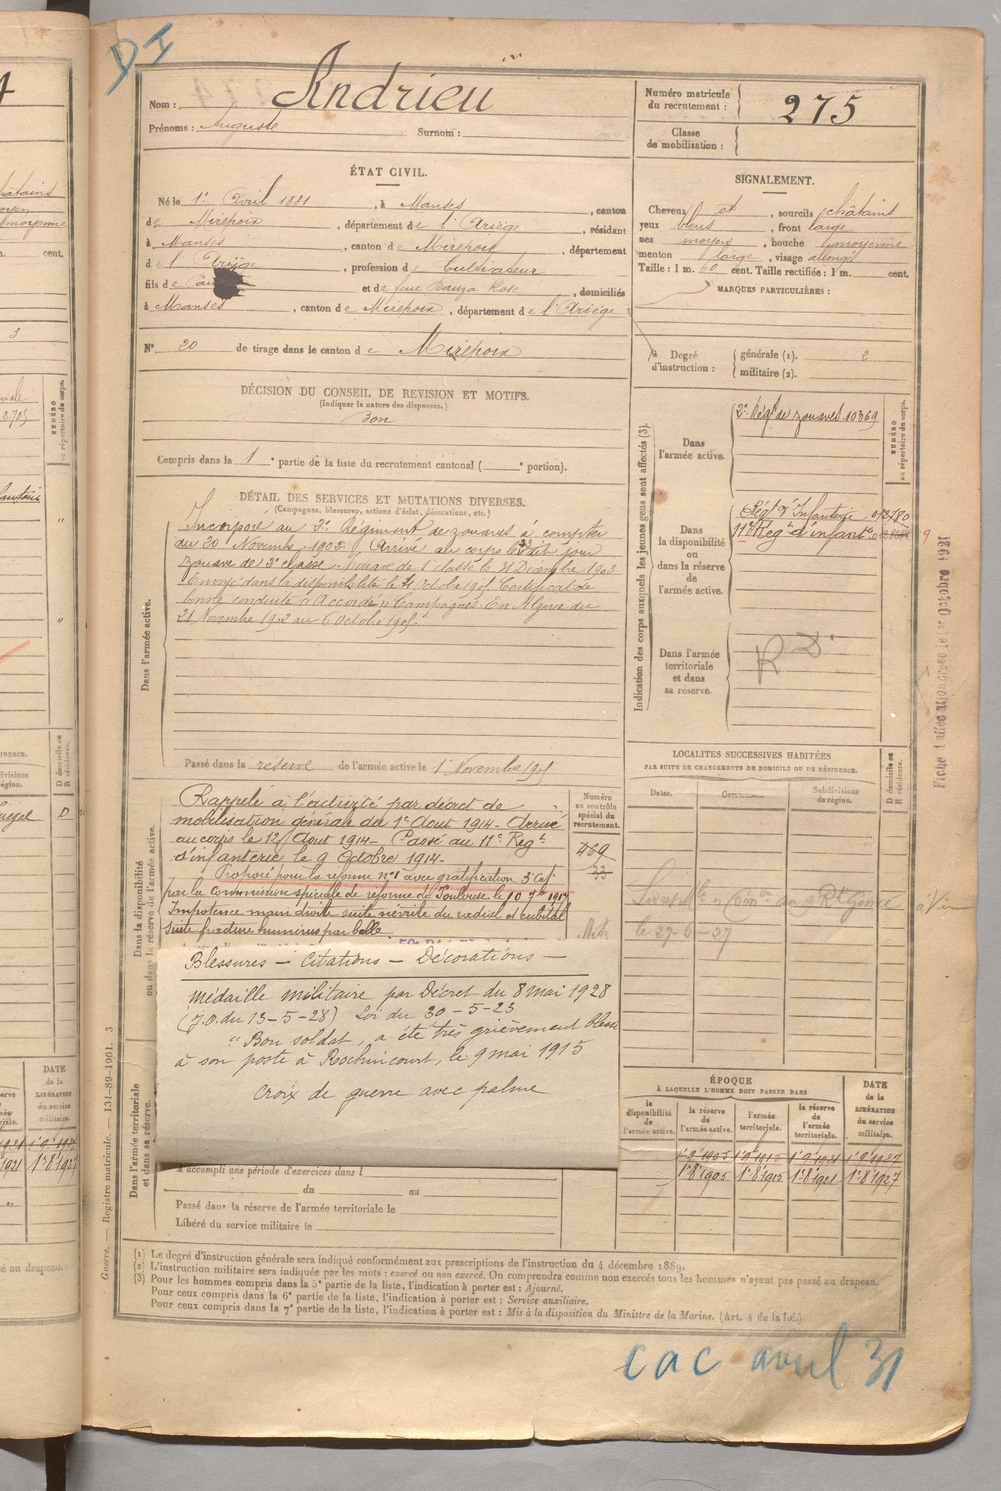 DI
Nom : Andrieu
Prénoms : Auguste Surnom :
Numéro matricule du recrutement : 275
Classe de mobilisation :
ÉTAT CIVIL.
Né le 1er Avril 1881, à Manses, canton
de Mirepoix, département de l'Ariège, résidant
à Manses, canton de Mirepoix, département
de l'Ariège, profession de Cultivateur
fils de et de feue Rose, domiciliés
à Manses, canton de Mirepoix, département de l'Ariège
N° 20 de tirage dans le canton de Mirepoix
SIGNALEMENT.
Cheveux et, sourcils châtains
yeux bleus, front large
nez moyen, bouche moyenne
menton large, visage allongé
Taille : 1 m. 60 cent. Taille rectifiée : 1 m. cent.
MARQUES PARTICULIÈRES :
Degré d'instruction : générale (1). 2
militaire (2).
DÉCISION DU CONSEIL DE REVISION ET MOTIFS.
(Indiquer la nature des dispenses.)
Bon
Compris dans la 1e partie de la liste du recrutement cantonal ( e portion).
DÉTAIL DES SERVICES ET MUTATIONS DIVERSES.
(Campagnes, blessures, actions d'éclat, décorations, etc.)
Dans l'armée active.
Incorporé au 2e Régiment de zouaves à compter
du 20 Novembre 1902. Arrivé au corps le dit jour
zouave de 2e classe. Zouave de 1e classe le 31 Décembre 1903
Envoyé dans la disponibilité le Octobre 1905 Certificat de
bonne conduite "Accordé" Campagnes: En Algérie du
21 Novembre 1902 au 6 Octobre 1905.
Passé dans la réserve de l'armée active le 1er Novembre 1905
Indication des corps auxquels les jeunes gens sont affectés (3).
NUMÉRO au répertoire du corps.
Dans l'armée active.
2e Régt de zouaves 10369
Dans la disponibilité ou dans la réserve de l'armée active.
Régt d'Infanterie
11e Régt d'infantie
9
Dans l'armée territoriale et dans sa réserve.
RD
Fiche d'affectation créée le 1er Octobre 1921
Dans la disponibilité ou dans la réserve de l'armée active.
Rappelé à l'activité par décret de
mobilisation générale du 1er Août 1914 - Arrivé
au corps le 12 Août 1914 - Passé au 11e Régt
d'infanterie le 9 Octobre 1914 -
Proposé pour la réforme n°1 avec gratification 3e Cat
par la Commission spéciale de réforme de Toulouse le 10 7bre 1917
Impotence main droite suite névrite du radial et cubital
suite fracture humérus par balle
Numéro au contrôle spécial du recrutement.
469
33
LOCALITÉS SUCCESSIVES HABITÉES
PAR SUITE DE CHANGEMENTS DE DOMICILE OU DE RÉSIDENCE.
Dates. Communes. Subdivisions de région. D domicile ou R résidence.
le 27-6-27
Blessures - Citations - Décorations -
Médaille militaire par Décret du 8 mai 1928
(J.O. du 13-5-28) Loi du 30-5-23
"Bon soldat, a été très grièvement blessé
à son poste à Rochincourt, le 9 mai 1915
Croix de guerre avec palme
Dans l'armée territoriale et dans sa réserve.
A accompli une période d'exercices dans l
du au
Passé dans la réserve de l'armée territoriale le
Libéré du service militaire le
ÉPOQUE
À LAQUELLE L'HOMME DOIT PASSER DANS
la disponibilité de l'armée active. la réserve de l'armée active. l'armée territoriale. la réserve de l'armée territoriale. DATE de la LIBÉRATION du service militaire.
1er 8 1905 1er 8 1912 1er 8 1921 1er 8 1927
(1) Le degré d'instruction générale sera indiqué conformément aux prescriptions de l'instruction du 4 décembre 1889.
(2) L'instruction militaire sera indiquée par les mots : exercé ou non exercé. On comprendra comme non exercés tous les hommes n'ayant pas passé au drapeau.
(3) Pour les hommes compris dans la 5e partie de la liste, l'indication à porter est : Ajourné.
Pour ceux compris dans la 6e partie de la liste, l'indication à porter est : Service auxiliaire.
Pour ceux compris dans la 7e partie de la liste, l'indication à porter est : Mis à la disposition du Ministre de la Marine. (Art. 4 de la loi.)
Guerre. — Registre matricule. — 131-89-1901. 3
cac avril 31